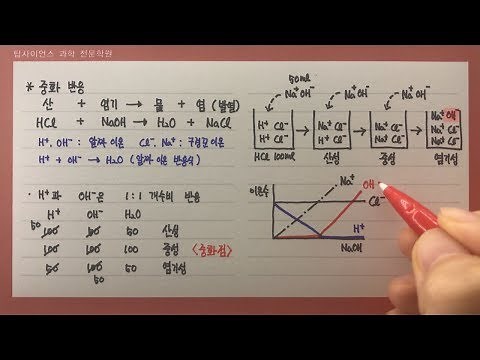 탑사이언스 과학 전문학원
* 중화 반응
산 + 염기 → 물 + 염 (발열)
HCl + NaOH → H₂O + NaCl
H⁺, OH⁻ : 알짜 이온 Cl⁻, Na⁺ : 구경꾼 이온
H⁺ + OH⁻ → H₂O (알짜 이온 반응식)
· H⁺과 OH⁻은 1:1 개수비 반응
H⁺ OH⁻ H₂O
50
100 100 50 산성
100 100 100 중성 <중화점>
50 100 50 염기성
50
50ml
Na⁺OH⁻ Na⁺OH⁻ Na⁺OH⁻
H⁺ Cl⁻ H⁺ Cl⁻ Na⁺ Cl⁻ Na⁺ OH⁻
H⁺ Cl⁻ Na⁺ Cl⁻ Na⁺ Cl⁻ Na⁺ Cl⁻
Na⁺ Cl⁻
HCl 100ml 산성 중성 염기성
이온수
Na⁺
OH
Cl⁻
H⁺
NaOH